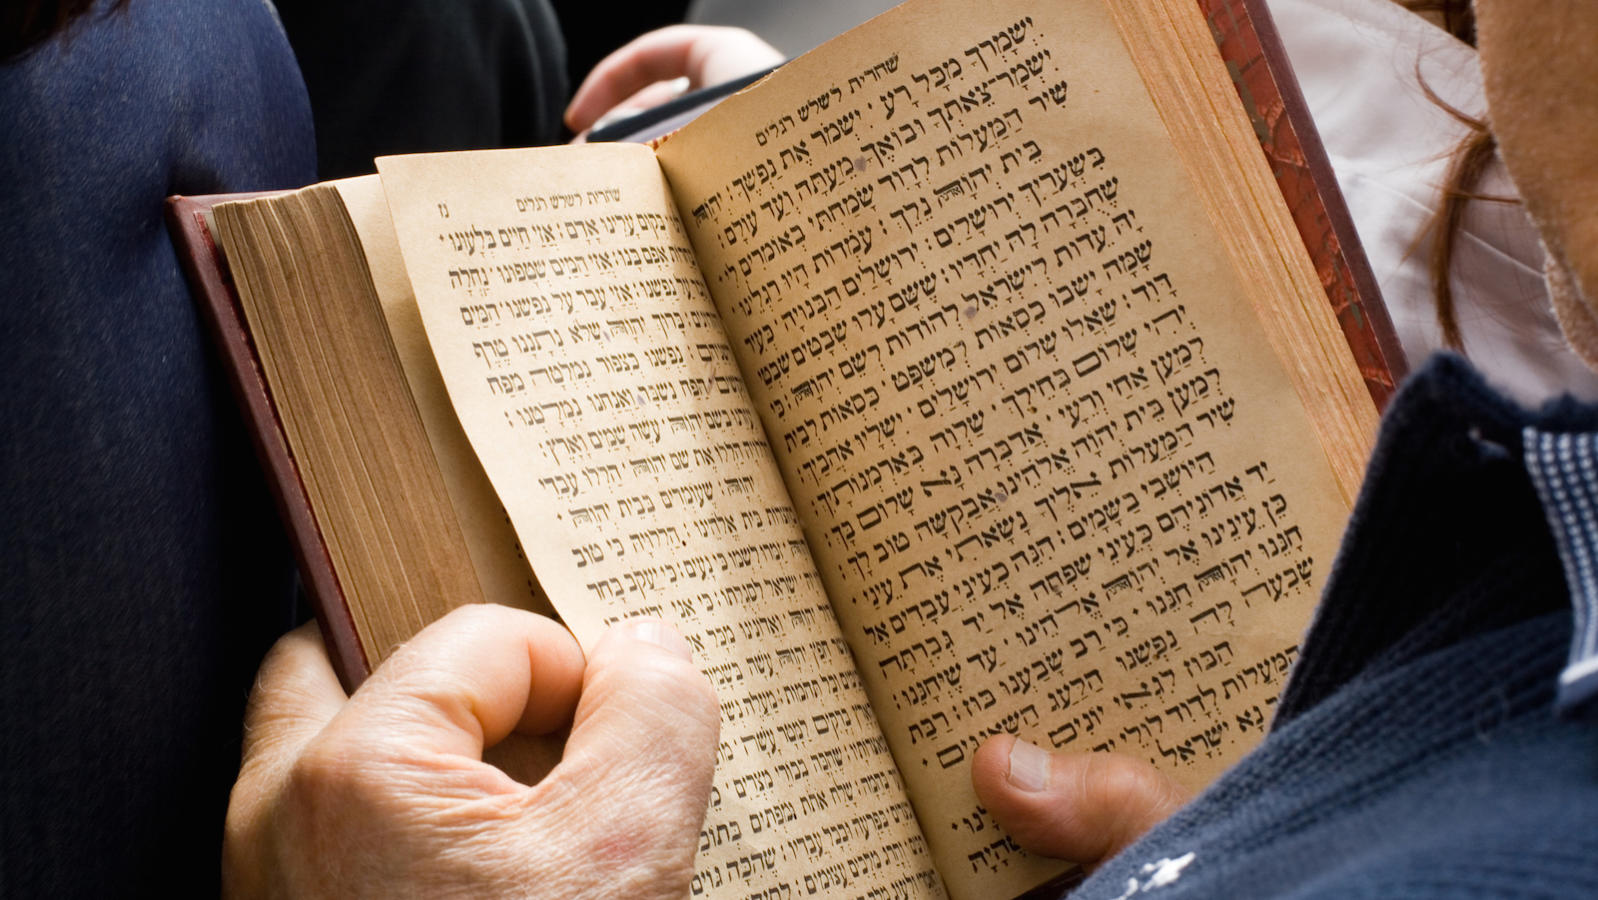 שחרית לשלש רגלים
יִשְׁמָרְךָ מִכָּל רָע · יִשְׁמֹר אֶת נַפְשֶׁךָ: יְהֹוָה
יִשְׁמָר־צֵאתְךָ וּבוֹאֶךָ · מֵעַתָּה וְעַד עוֹלָם:
שִׁיר הַמַּעֲלוֹת לְדָוִד שָׂמַחְתִּי בְּאוֹמְרִים לִי ·
בֵּית יְהֹוָה נֵלֵךְ: עֹמְדוֹת הָיוּ רַגְלֵינוּ ·
בִּשְׁעָרַיִךְ יְרוּשָׁלָיִם: יְרוּשָׁלַיִם הַבְּנוּיָה כְּעִיר
שֶׁחֻבְּרָה לָּהּ יַחְדָּיו: שֶׁשָּׁם עָלוּ שְׁבָטִים שִׁבְטֵי
יָהּ עֵדוּת לְיִשְׂרָאֵל לְהוֹדוֹת לְשֵׁם יְהֹוָה: כִּי
שָׁמָּה יָשְׁבוּ כִסְאוֹת לְמִשְׁפָּט · כִּסְאוֹת לְבֵית
דָּוִד: שַׁאֲלוּ שְׁלוֹם יְרוּשָׁלָיִם · יִשְׁלָיוּ אֹהֲבָיִךְ:
יְהִי שָׁלוֹם בְּחֵילֵךְ · שַׁלְוָה בְּאַרְמְנוֹתָיִךְ:
לְמַעַן אַחַי וְרֵעָי · אֲדַבְּרָה נָּא שָׁלוֹם בָּךְ:
לְמַעַן בֵּית יְהֹוָה אֱלֹהֵינוּ אֲבַקְשָׁה טוֹב לָךְ:
שִׁיר הַמַּעֲלוֹת אֵלֶיךָ נָשָׂאתִי אֶת עֵינַי ·
הַיּוֹשְׁבִי בַּשָּׁמָיִם: הִנֵּה כְעֵינֵי עֲבָדִים אֶל
יַד אֲדוֹנֵיהֶם כְּעֵינֵי שִׁפְחָה אֶל יַד גְּבִרְתָּהּ
כֵּן עֵינֵינוּ אֶל יְהֹוָה אֱלֹהֵינוּ · עַד שֶׁיְּחָנֵּנוּ:
חָנֵּנוּ יְהֹוָה חָנֵּנוּ · כִּי רַב שָׂבַעְנוּ בוּז: רַבַּת
שָׂבְעָה לָּהּ נַפְשֵׁנוּ הַלַּעַג הַשַּׁאֲנַנִּים ·
הַבּוּז לִגְאֵי יוֹנִים
הַמַּעֲלוֹת לְדָוִד לוּלֵי
נָא יִשְׂרָאֵל
שחרית לשלש רגלים נז
בְּקוּם עָלֵינוּ אָדָם: אֲזַי חַיִּים בְּלָעוּנוּ ·
אַפָּם בָּנוּ: אֲזַי הַמַּיִם שְׁטָפוּנוּ · נַחְלָה
עַל נַפְשֵׁנוּ: אֲזַי עָבַר עַל נַפְשֵׁנוּ הַמַּיִם
בָּרוּךְ יְהֹוָה שֶׁלֹּא נְתָנָנוּ טֶרֶף
נַפְשֵׁנוּ כְּצִפּוֹר נִמְלְטָה מִפַּח
הַפַּח נִשְׁבָּר וַאֲנַחְנוּ נִמְלָטְנוּ:
בְּשֵׁם יְהֹוָה עֹשֵׂה שָׁמַיִם וָאָרֶץ:
הַלְלוּ אֶת שֵׁם יְהֹוָה הַלְלוּ עַבְדֵי
יְהֹוָה · שֶׁעוֹמְדִים בְּבֵית יְהֹוָה ·
בֵּית אֱלֹהֵינוּ · הַלְלוּיָהּ כִּי טוֹב
לִשְׁמוֹ כִּי נָעִים: כִּי יַעֲקֹב בָּחַר
יִשְׂרָאֵל לִסְגֻלָּתוֹ: כִּי אֲנִי
יְהֹוָה וַאֲדֹנֵינוּ מִכָּל
חָפֵץ יְהֹוָה עָשָׂה
וְכָל תְּהֹמוֹת · מַעֲלֶה
בְּרָקִים לַמָּטָר עָשָׂה
שֶׁהִכָּה בְּכוֹרֵי מִצְרָיִם ·
שָׁלַח אֹתֹת וּמֹפְתִים בְּתוֹכֵ
בְּפַרְעֹה וּבְכָל עֲבָדָיו: שֶׁהִכָּה גּוֹיִם
וְהָרַג מְלָכִים עֲצוּמִים: